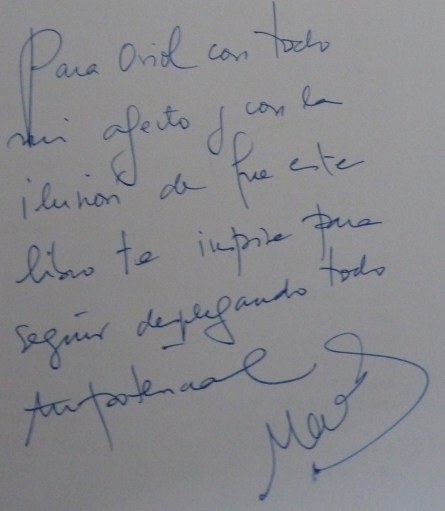 Para Oriol con todo
mi afecto y con la
ilusión de que este
libro te inspire para
seguir desplegando todo
tu potencial